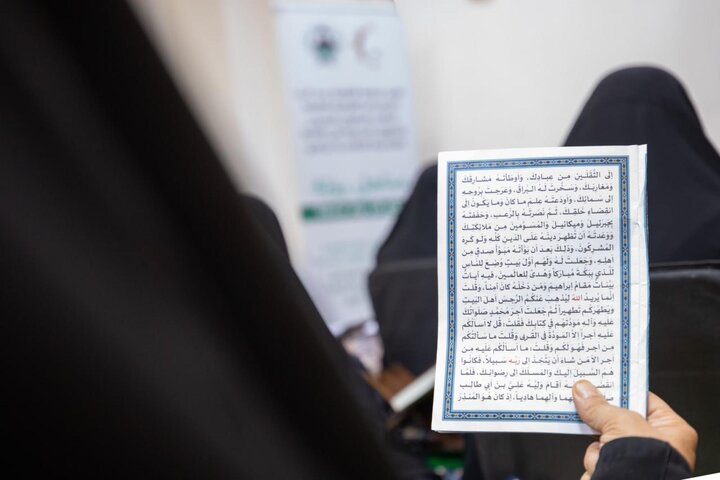 إلَى الثَّقَلَينِ مِن عِبادِكَ، وَأوطَأتَهُ مَشارِقَكَ
وَمَغارِبَكَ، وَسَخَّرتَ لَهُ البُراقَ، وَعَرَجتَ بِرُوحِهِ
إلى سَمائِكَ، وَأودَعتَهُ عِلمَ ما كانَ وَما يَكُونُ إلَى
انقِضاءِ خَلقِكَ، ثُمَّ نَصَرتَهُ بِالرُّعبِ، وَحَفَفتَهُ
بِجِبرَئِيلَ وَمِيكائِيلَ وَالمُسَوِّمينَ مِن مَلائِكَتِكَ
وَوَعَدتَهُ أن تُظهِرَ دينَهُ عَلَى الدّينِ كُلِّهِ وَلَو كَرِهَ
المُشرِكُونَ، وَذلِكَ بَعدَ أن بَوَّأتَهُ مُبَوَّأ صِدقٍ مِن
أهلِهِ، وَجَعَلتَ لَهُ وَلَهُم أوَّلَ بَيتٍ وُضِعَ لِلنّاسِ
لَلَّذي بِبَكَّةَ مُبارَكاً وَهُدىً لِلعالَمينَ، فيهِ آياتٌ
بَيِّناتٌ مَقامُ إبراهيمَ وَمَن دَخَلَهُ كانَ آمِناً، وَقُلتَ
إنَّما يُريدُ اللهُ لِيُذهِبَ عَنكُمُ الرِّجسَ أهلَ البَيتِ
وَيُطَهِّرَكُم تَطهيراً ثُمَّ جَعَلتَ أجرَ مُحَمَّدٍ صَلَواتُكَ
عَلَيهِ وَآلِهِ مَوَدَّتَهُم في كِتابِكَ فَقُلتَ: قُل لا أسألُكُم
عَلَيهِ أجراً إلاّ المَوَدَّةَ في القُربى وَقُلتَ ما سَألتُكُم
مِن أجرٍ فَهُوَ لَكُم وَقُلتَ: ما أسألُكُم عَلَيهِ مِن
أجرٍ إلاّ مَن شاءَ أن يَتَّخِذَ إلى رَبِّهِ سَبيلاً، فَكانُوا
هُمُ السَّبيلَ إلَيكَ وَالمَسلَكَ إلى رِضوانِكَ، فَلَمَّا
انقَضَت أقامَ وَلِيَّهُ عَلِيَّ بنَ أبي طالِبٍ
وَآلِهِما هادِياً، إذ كانَ هُوَ المُنذِرَ